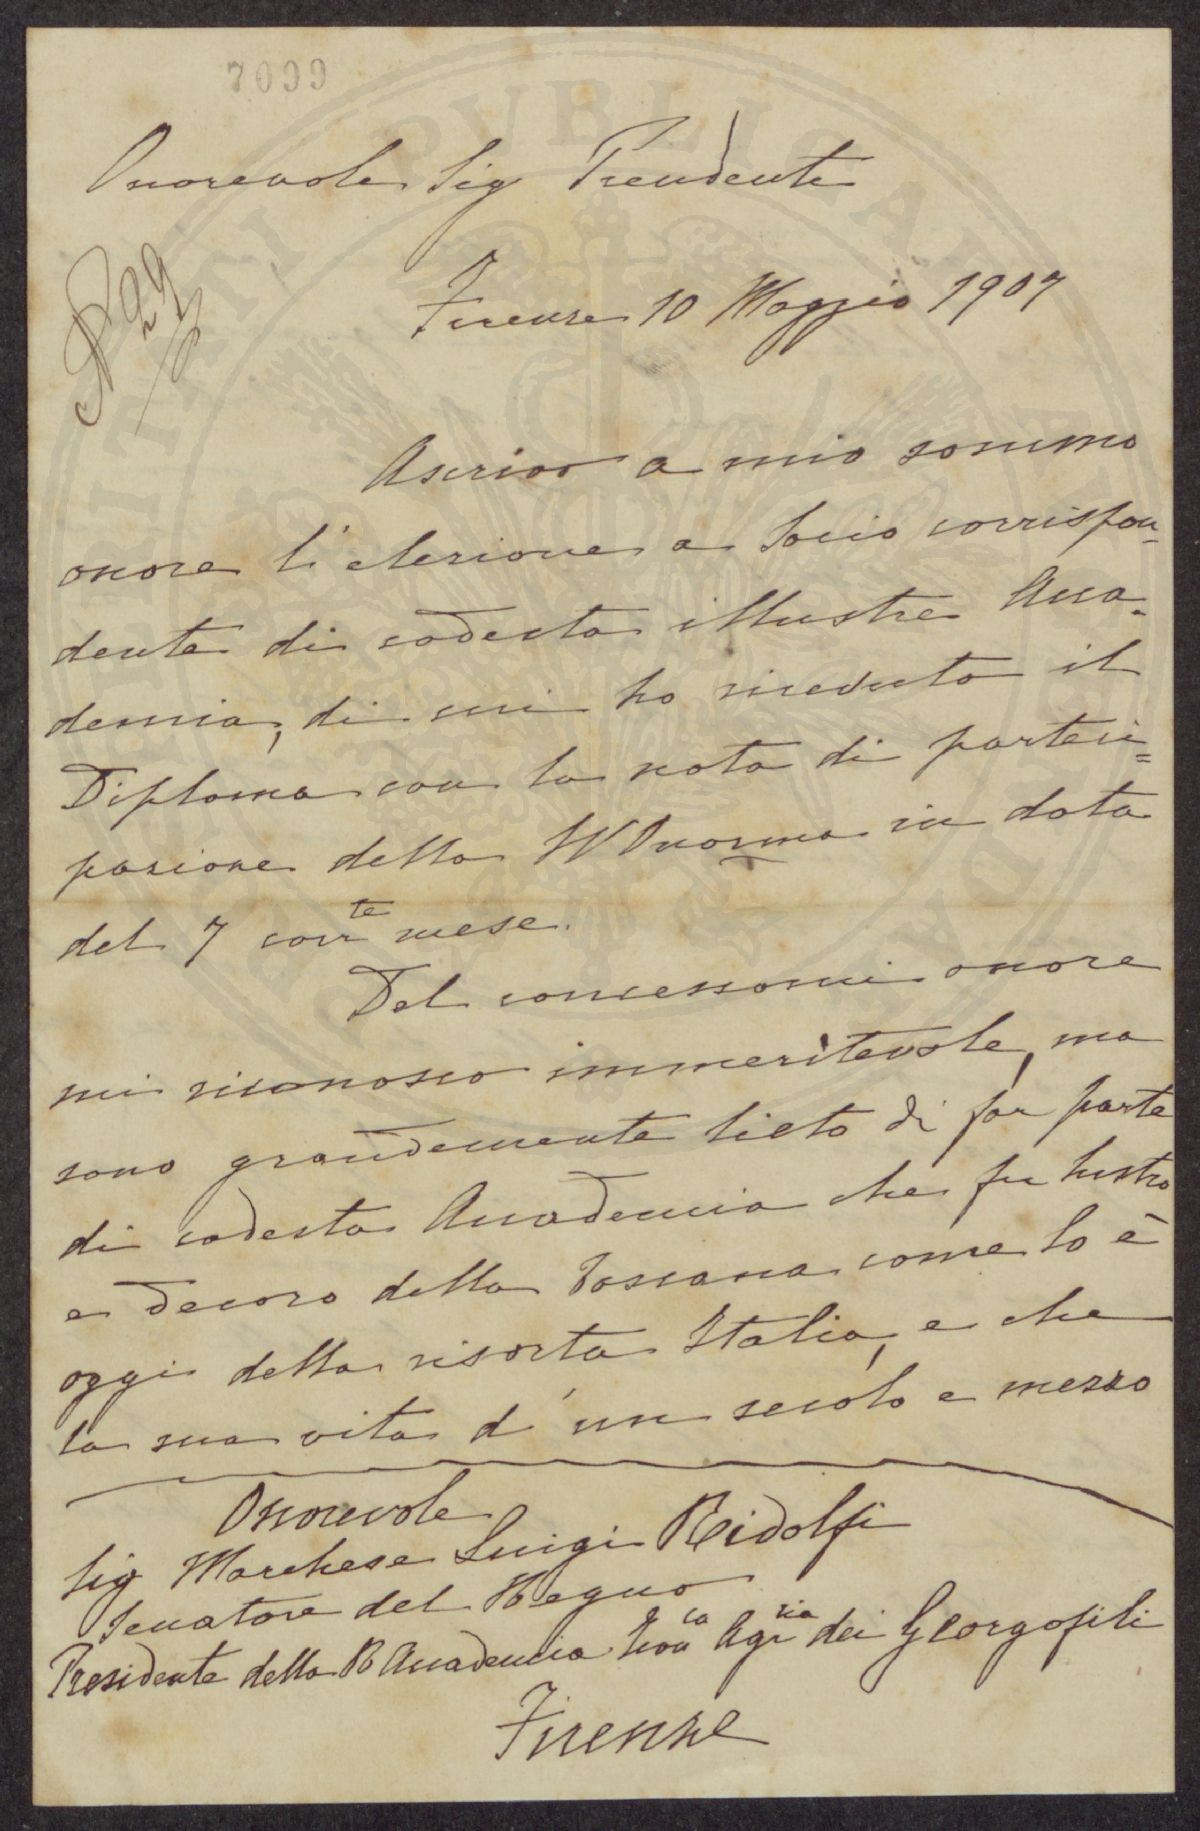 7099
Onorevole Sig Presidente
N 29
Firenze 10 Maggio 1907
Ascrivo a mio sommo
onore l'elezione a Socio corrispon-
dente di codesta illustre Acca-
demia, di cui ho ricevuto il
Diploma con la nota di parteci=
pazione della S V Onorma in data
del 7 corrte mese.
Del concessomi onore
mi riconosco immeritevole, ma
sono grandemente lieto di far parte
di codesta Accademia che fu lustro
e decoro della Toscana come lo è
oggi della risorta Italia, e che
la sua vita d'un secolo e mezzo
Onorevole
Sig Marchese Luigi Ridolfi
Senatore del Regno
Presidente della R Accademia Econca Agria dei Georgofili
Firenze